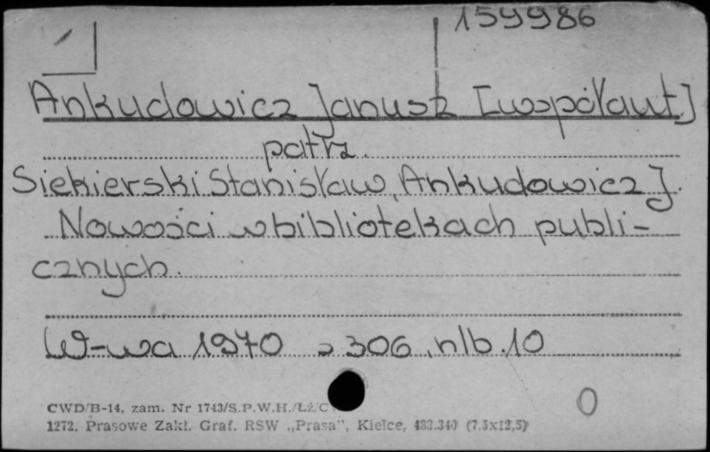 1
159986
Ankudowicz Janusz [współaut.]
patrz.
Siekierski Stanisław, Ankudowicz J.
Nowości w bibliotekach publi-
cznych.
W-wa 1970 s 306, nlb. 10
CWD/B-14, zam. Nr 1743/S.P.W.H./Lz/C
1272. Prasowe Zakł. Graf. RSW „Prasa", Kielce, 483.340 (7.5x12,5)
0